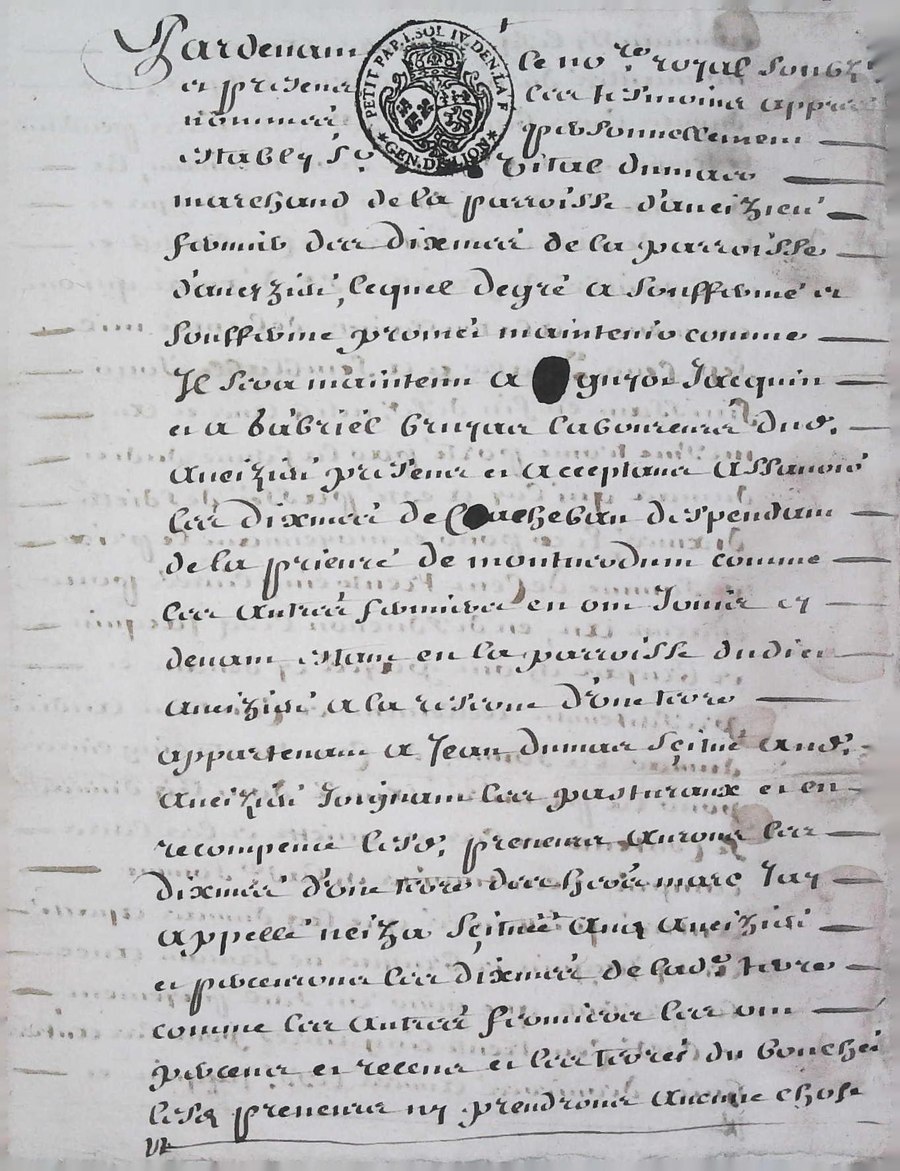 Pardevant le no.re royal soubz.né
PETIT PAP. 1. SOL IV. DEN. LA F
* GEN. DE LION *
et presents les tesmoins apprés
nommés personnellement
estably Sr vital dumas
marchand de la parroisse d'aveizieu
fermier des dixmes de la parroisse
d'aveyzieu, lequel degré a soufferme et
soufferme promet maintenir comme
Il sera maintenu a guyot Jacquin
et a gabriel bruyas laboureurs dud.
aveizieu presents et acceptants assavoir
les dixmes de despendant
de la prieuré de montverdun comme
les autres fermiers en ont Jouir et
devant estant en la parroisse dudict
aveizieu a la reserve d'une terre
appartenant a Jean dumas scitué aud.
aveizieu Joignant les pasturaux et en
recompense lesd. preneurs auront les
dixmes d'une terre des hers marc Jay
appellé neiza scituée aud aveizieu
et perceuront les dixmes de lad. terre
comme les autres fermiers les ont
perceus et receus et les terres du bouchet
lesd preneurs ny prendront aucune chose